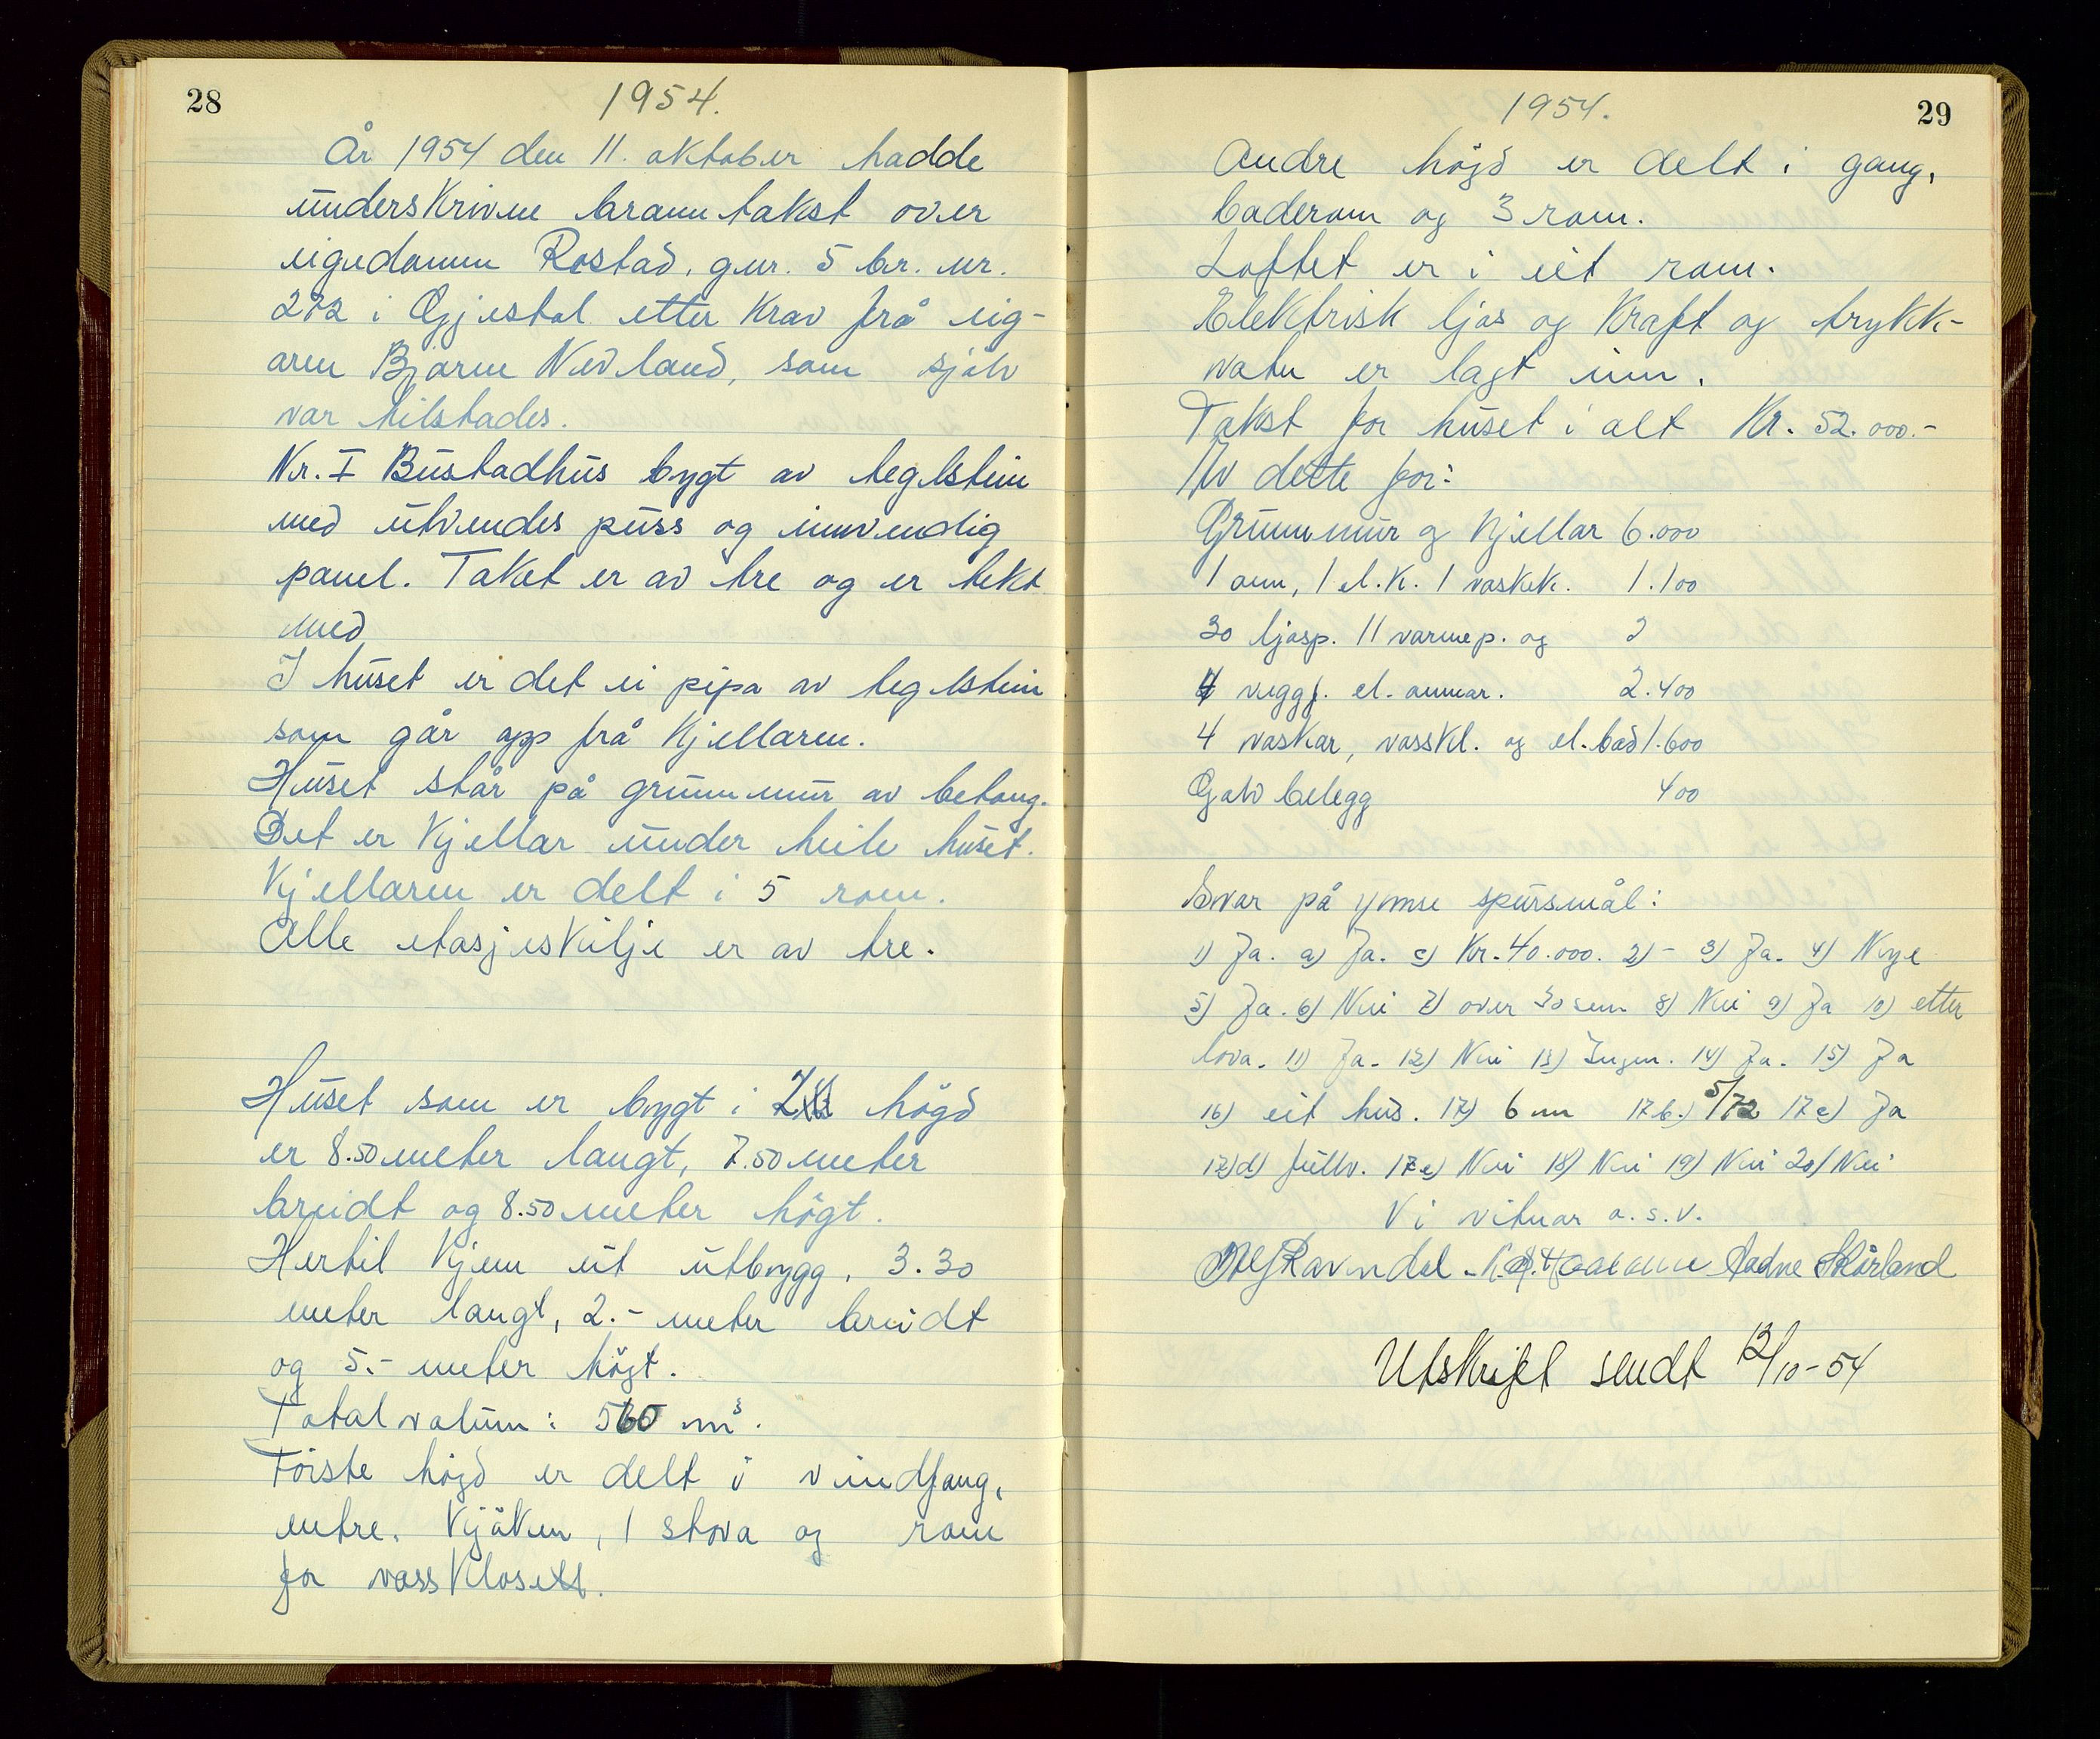 28
1954.
År 1954 den 11. oktober hadde
underskrivne branntakst over
eigedomen Rostad, gnr. 5 br. nr.
272 i Gjestal etter krav frå eig-
aren Bjarne Nevland, som sjølv
var tilstades.
Nr. I Bustadhus bygt av teglstein
med utvendes puss og innvendig
panel. Taket er av tre og er tekt
med
I huset er det ei pipa av teglstein
som går opp frå kjellaren.
Huset står på grunnmur av betong.
Det er kjellar under heile huset.
Kjellaren er delt i 5 rom.
Alle etasjeskilje er av tre.
Huset som er bygt i 2 högd
er 8.50 meter langt, 7.50 meter
breidt og 8.50 meter högt.
Hertil kjem eit utbygg, 3.30
meter langt, 2.- meter breidt
og 5.- meter högt.
Total volum: 560 m³.
Förste högd er delt i vindfang,
entre, kjöken, 1 stova og rom
for vassklosett.
29
1954.
Andre högd er delt i gang,
baderom og 3 rom.
Loftet er i eit rom.
Elektrisk ljos og kraft og trykk-
vatn er lagt inn.
Takst for huset i alt Kr. 52.000.-
Av dette for:
Grunnmur og kjellar 6.000
1 omn, 1 el.k. 1 vaskek. 1.100
30 ljosp. 11 varmep. og
4 veggf. el. omnar. 2.400
4 vaskar, vasskl. og el.bad 1.600
Golvbelegg 400
Svar på ymse spursmål:
1) Ja. a) Ja. c) Kr. 40.000. 2) - 3) Ja. 4) Nye
5) Ja. 6) Nei 7) over 30 sem 8) Nei 9) Ja 10) etter
lova. 11) Ja. 12) Nei 13) Ingen. 14) Ja. 15) Ja
16) eit hus. 17) 6 m 17b.) 5/72 17c) Ja
17)d) fullv. 17e) Nei 18) Nei 19) Nei 20) Nei
Vi vitnar o.s.v.
Ravndal Aadne Skårland
Utskrift sendt 12/10-54